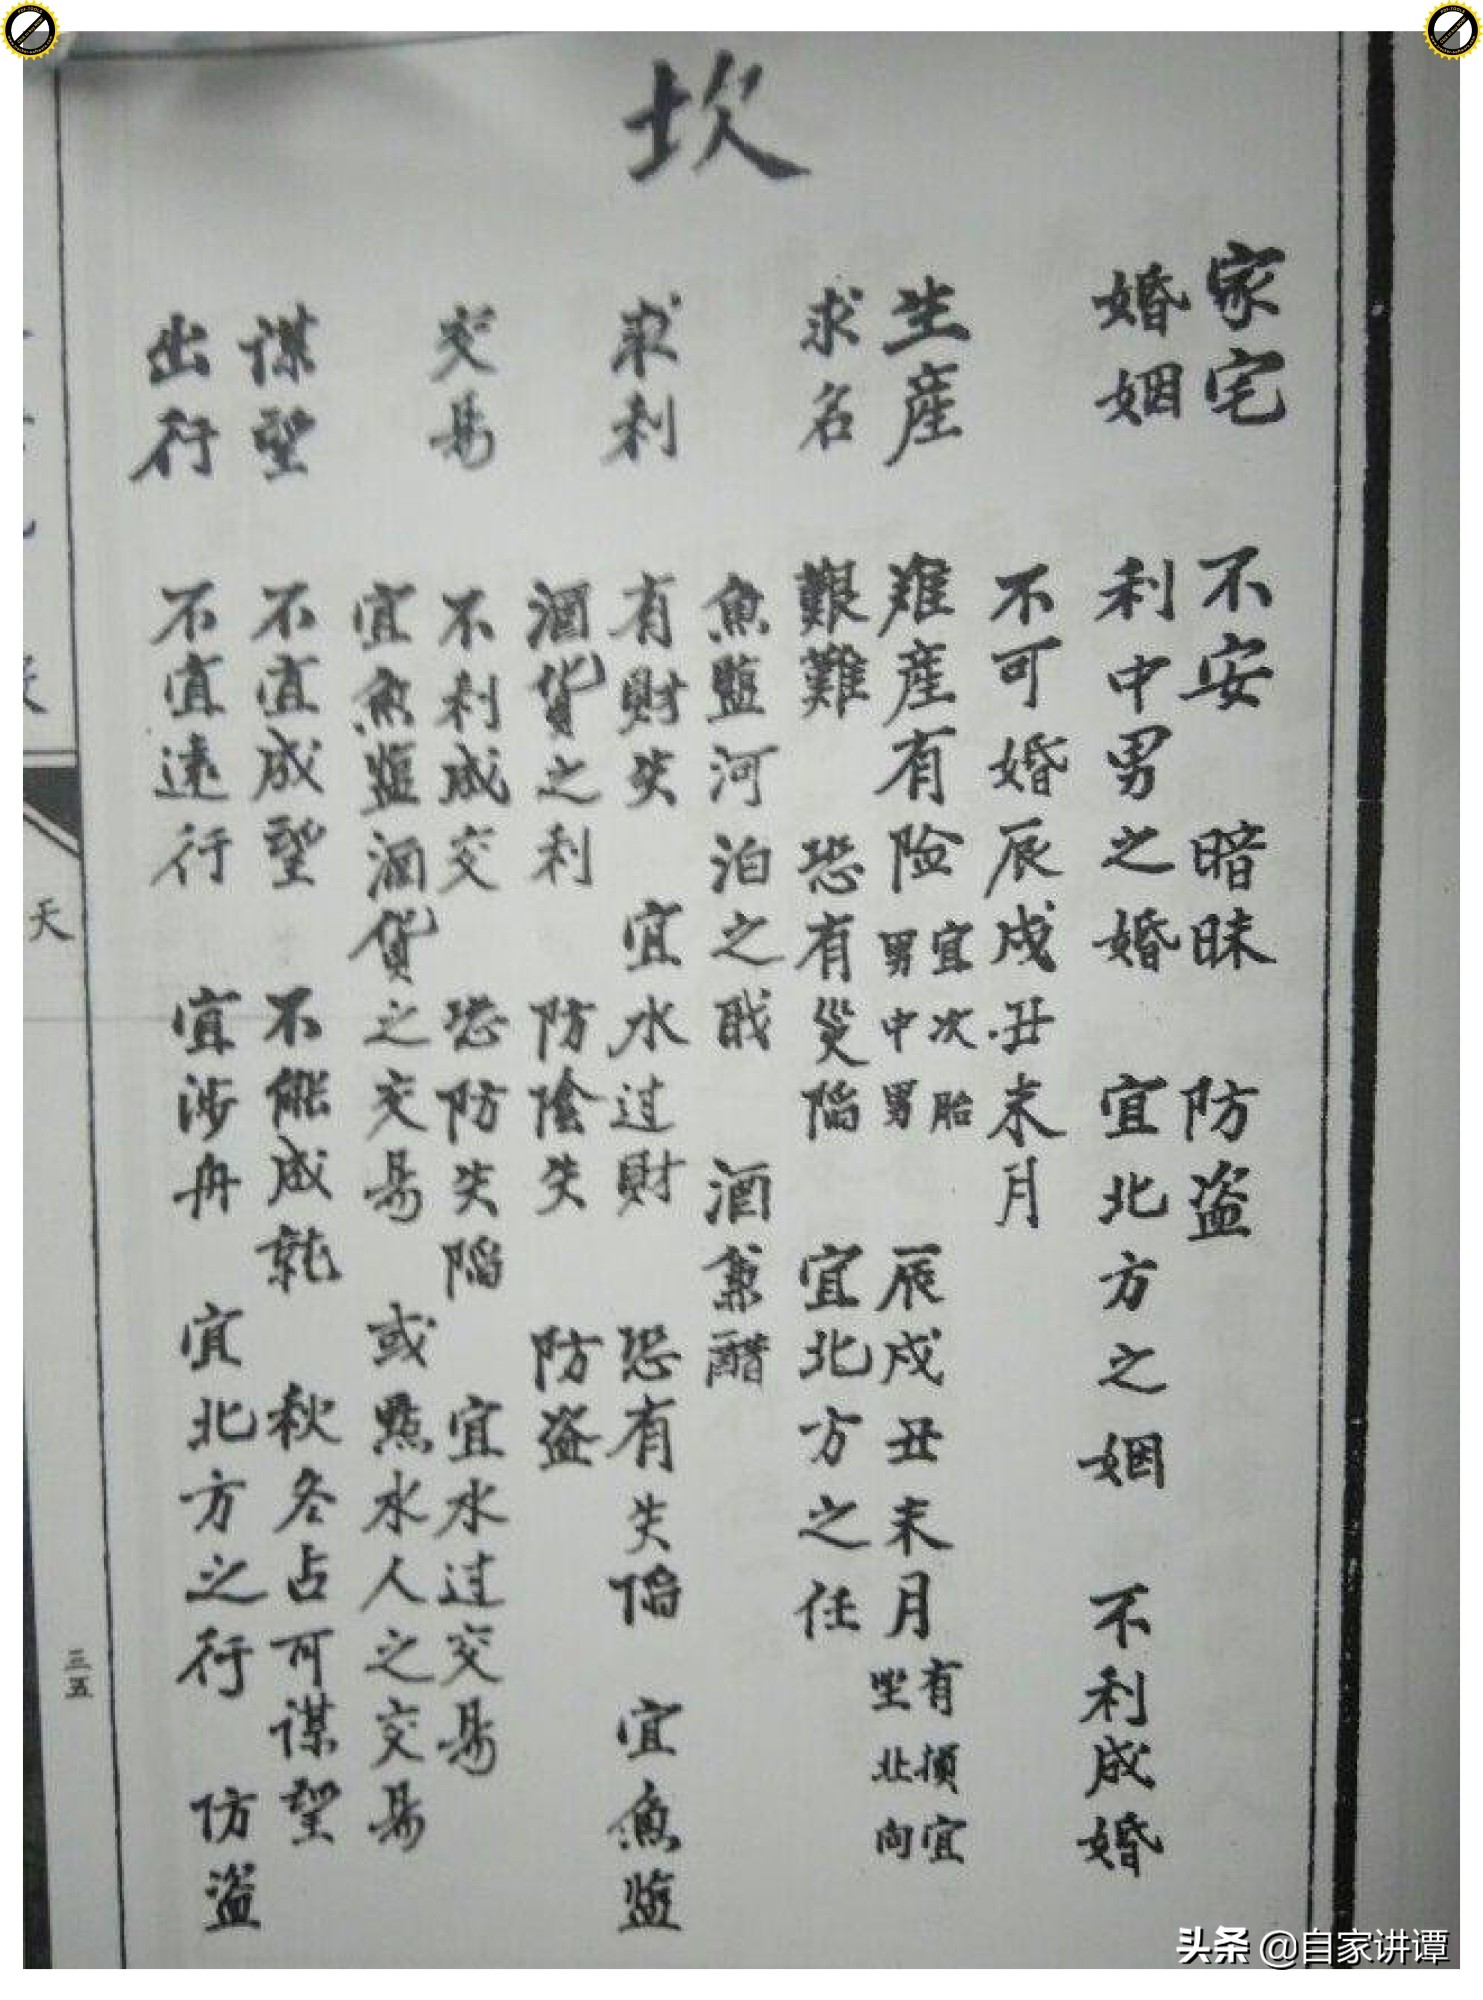 坎
家宅 不安 暗昧 防盗
婚姻 利中男之婚 宜北方之姻 不利成婚
不可婚辰戌丑未月
生産 难産有险 宜次胎 男中男 辰戌丑末月 有损宜 坐北向
求名 艱難 恐有災陷 宜北方之任
魚盬河泊之戝 酒兼醋
求利 有財失 宜水过財 恐有失陷 宜魚盬
酒貨之利 防陰失 防盗
交易 不利成交 恐防失陷 宜水过交易
宜魚盬酒貨之交易 或點水人之交易
谋望 不宜成望 不能成就 秋冬占可谋望
出行 不宜遠行 宜涉舟 宜北方之行 防盗
天
三五
头条 @自家讲谭